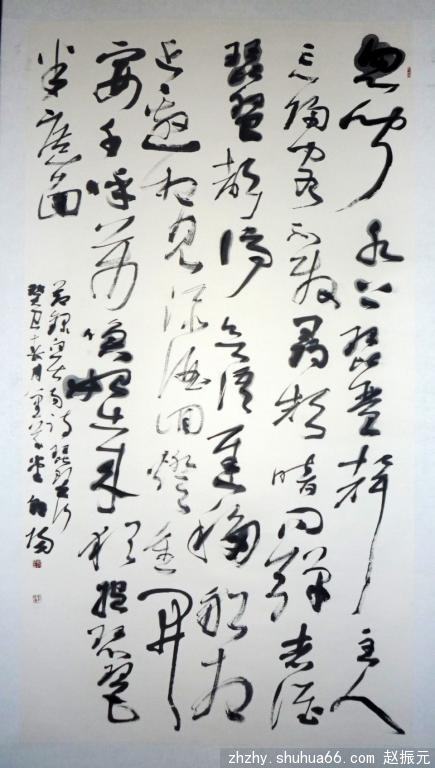 忽聞水上琵琶聲主人
忘歸客不發尋聲暗問彈者誰
琵琶聲停欲語遲移船相
近邀相見添酒回燈重開
宴千呼萬喚始出來猶抱琵琶
半遮面
節錄白居易詩琵琶行
癸巳 月
zhzhy.shuhua66.com 赵振元